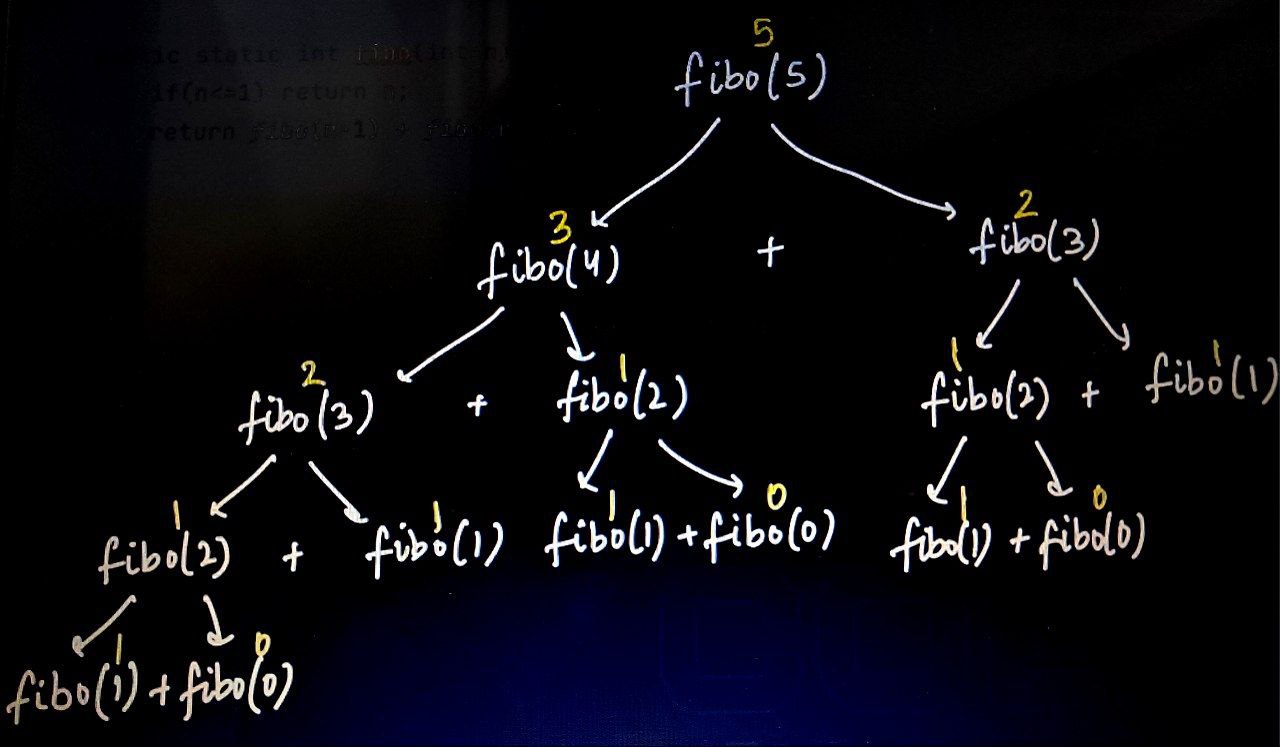 ic static int fibo(int n)
if(n<=1) return n;
return fibo(n-1) + fibo
5
fibo(5)
3 2
fibo(4) + fibo(3)
2 1 1 1
fibo(3) + fibo(2) fibo(2) + fibo(1)
1 1 1 0 1 0
fibo(2) + fibo(1) fibo(1) + fibo(0) fibo(1) + fibo(0)
1 0
fibo(1) + fibo(0)